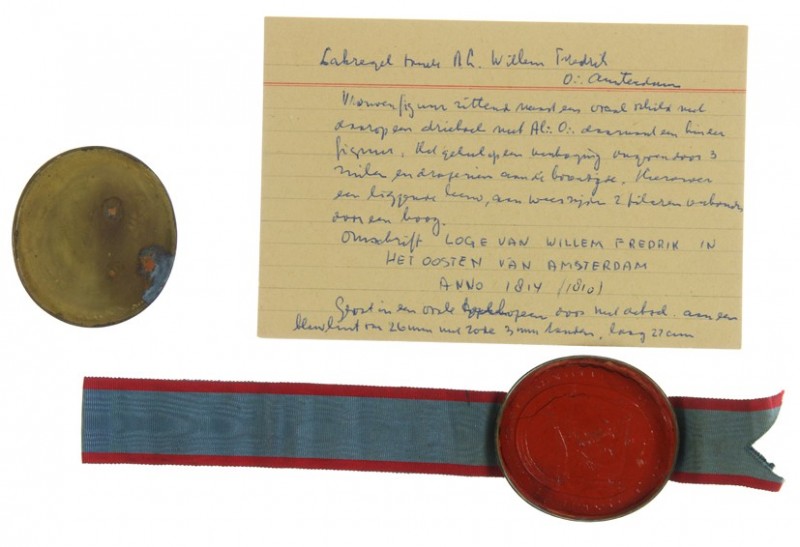 Lakzegel Willem Fredrik
O∴ Amsterdam
Vrouwenfiguur zittend naast een ovaal schild met
daarop een driehoek met Al∴ O∴ daarnaast een kinder
figuur. Het geheel op een verhoging omgeven door 3
zuilen en draperieën aan de bovenzijde. Hierover
een liggende leeuw, aan weerszijde 2 pilaren verbonden
door een boog.
Omschrift LOGE VAN WILLEM FREDRIK IN
HET OOSTEN VAN AMSTERDAM
ANNO 1814 (1810)
Gevat in een ovale koperen doos met deksel aan een
blauw lint van 26mm met rode 3mm banden, lang 27cm